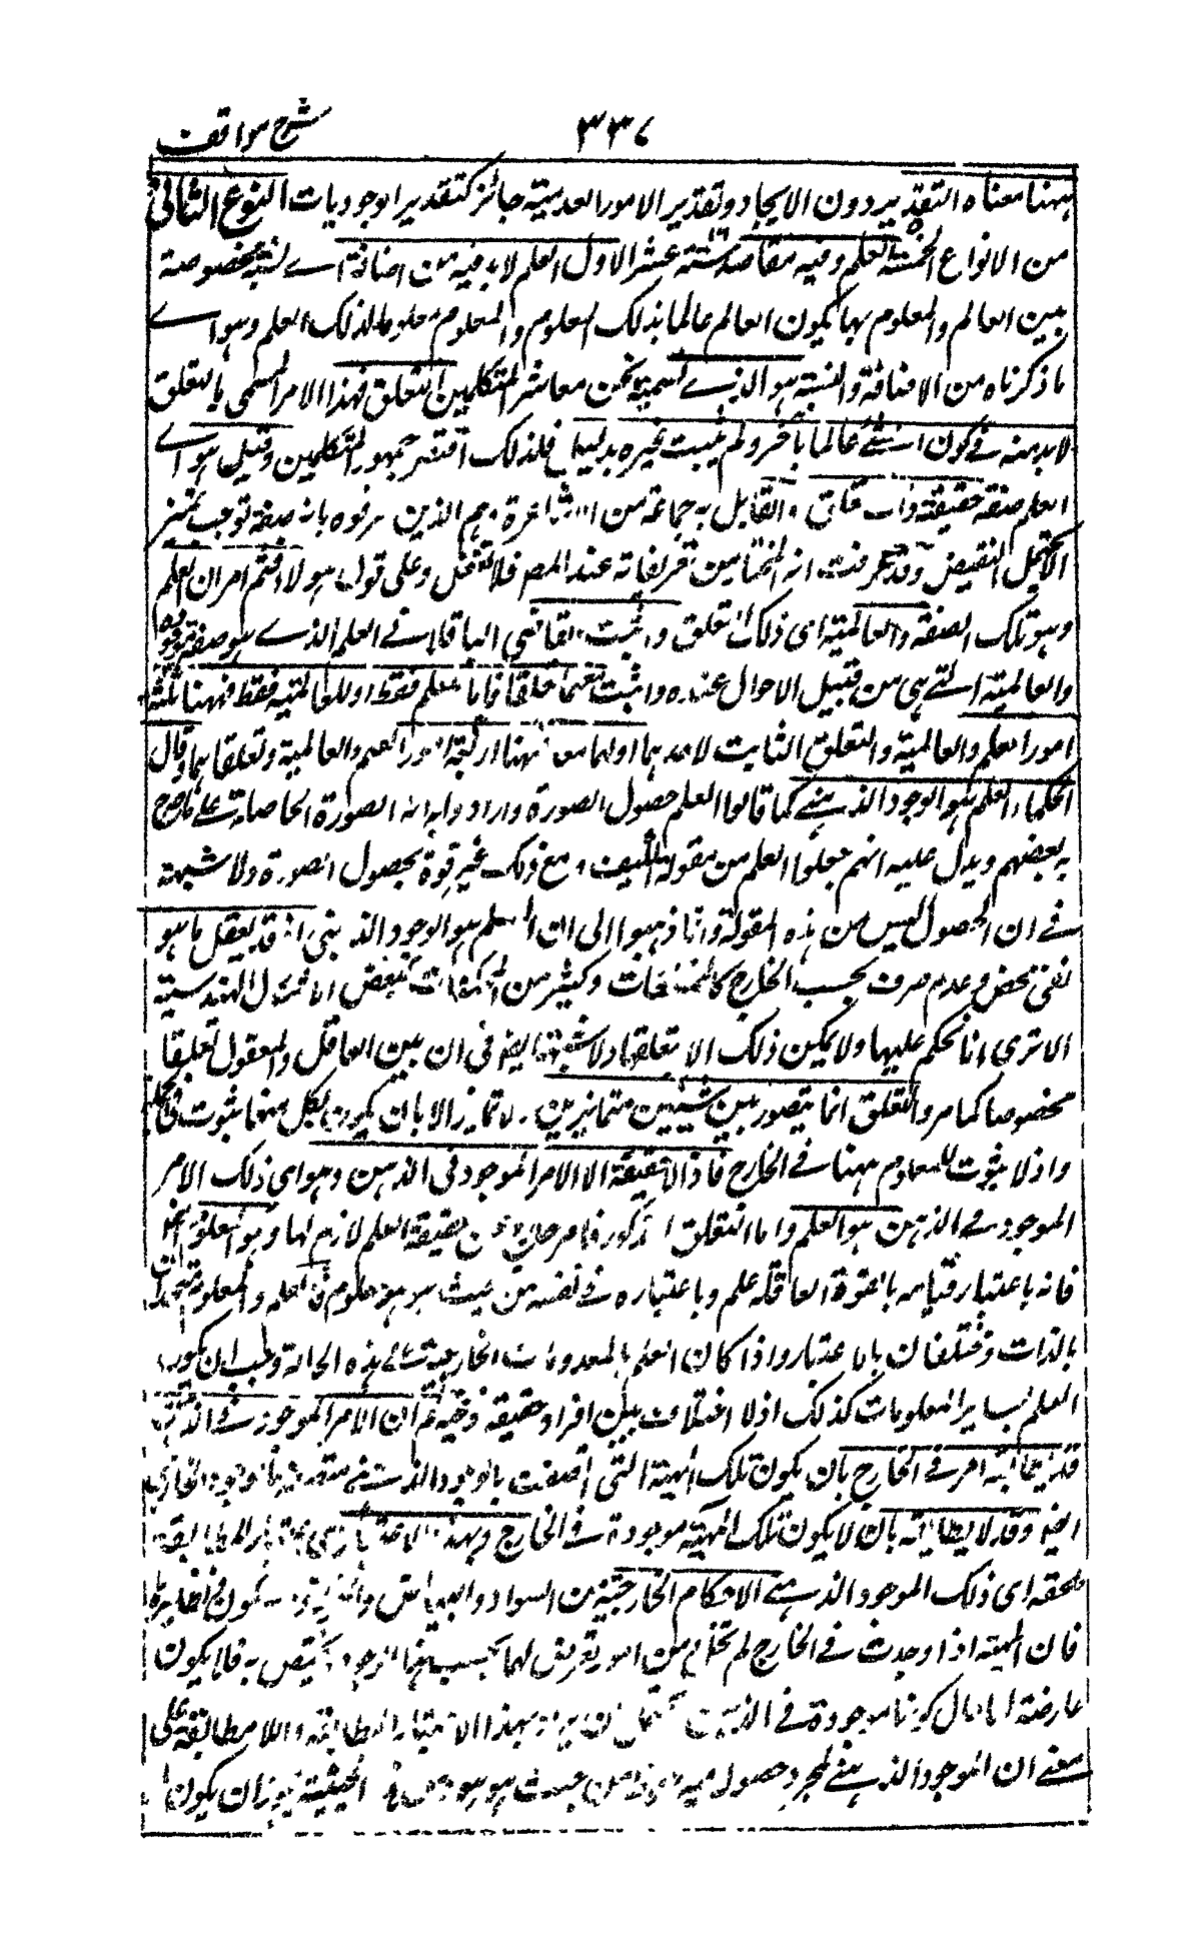 شرح مواقف
٣٣٧
ههنا معناه التقدير دون الايجاد وتقدير الامور العدمية جائز كتقدير الوجوديات النوع الثانى
من الانواع الخمسة العلم وفيه مقاصد ستة عشر الاول العلم لا بد فيه من اضافة اے نسبة مخصوصة
بين العالم والمعلوم بها يكون العالم عالما بذلك المعلوم والمعلوم معلوما لذلك العلم وهو اے
ما ذكرناه من الاضافة والنسبة هو الذے نسميه نحن معاشر المتكلمين التعلق فهذا الامر المسمى بالتعلق
لا بد منه فے كون الشئ عالما بآخر ولم يثبت غيره بدليل فلذلك اقتصر جمهور المتكلمين وقيل هو اے
العلم صفة حقيقة ذات تعلق والقايل به جماعة من الاشاعرة وهم الذين عرفوه بانه صفة توجب تميز
الا يحتمل النقيض وقد عرفت انه المختار من تعريفاته عند المصر فلا تغفل وعلى قول هولاء فثم امران العلم
وهو تلك الصفة والعالمية اى ذلك التعلق واثبت القاضى الباقلانے العلم الذے هو صفة موجودة
والعالمية التے هى من قبيل الاحوال عنده واثبت معهما تعلقا فاما للعلم فقط او للعالمية فقط فههنا ثلثة
امور العلم والعالمية والتعلق الثابت لاحدهما او لهما معا فههنا اربعة امور العلم والعالمية وتعلقاهما وقال
الحكماء العلم هو الوجود الذهنے كما قالوا العلم حصول الصورة وارادوا به انه الصورة الحاصلة علے ما صرح
به بعضهم ويدل عليه انهم جعلوا العلم من مقولة الكيف ومع ذلك عبروه بحصول الصورة ولا شبهة
فے ان الحصول ليس من هذه المقولة وانما ذهبوا الى ان العلم هو الوجود الذهنى اذ قد يعقل ما هو
نفى محض وعدم صرف بحسب الخارج كالممتنعات وكثير من الممكنات كبعض الاشكال الهندسية
الا ترى انا نحكم عليها ولا يمكن ذلك الا بتعقلها ولا شبهة ايضا فى ان بين العاقل والمعقول تعلقا
مخصوصا كما مر والتعلق انما يتصور بين شيئين متمايزين ولا تمايز الا بان يكون لكل منهما ثبوت فى الجملة
واذ لا ثبوت للمعلوم ههنا فے الخارج فاذا لا حقيقة له الا الامر الموجود فى الذهن وهو اى ذلك الامر
الموجود فے الذهن هو العلم واما التعلق المذكور فامر خارج عن حقيقة العلم لازم لها وهو المعلوم ايضا
فانه باعتبار قيامه بالقوة العاقلة علم وباعتباره فے نفسه من حيث هو هو معلوم فالعلم والمعلوم متحدان
بالذات ومختلفان بالاعتبار واذا كان العلم بالمعدومات الخارجية علے هذه الحالة وجب ان يكون
العلم بساير المعلومات كذلك اذ لا اختلاف بين افراد حقيقة نوعية ثم ان الامر الموجود فے الذهن
قد يطابقه امر فے الخارج بان يكون تلك المهية التى اتصفت بالوجود الذهنے متصفة بالوجود الخارجى
ايضا وقد لا يطابقه بان لا يكون تلك المهية موجودة فے الخارج وبهذا الاعتبار اى اعتبار المطابقة
يلحقه اى ذلك الموجود الذهنے الاحكام الخارجية من السواد والبياض
فان المهية اذا وجدت فے الخارج لم تخل من امور تعرض لها بحسب هذا الوجود ويختص به فلا يكون
عارضة لها حال كونها موجودة فے الذهن وبهذا الاعتبار المطابقة واللامطابقة على
معنے ان الموجود الذهنے لمجرد حصول من حيث هو هو الحيثية يجوز ان يكون